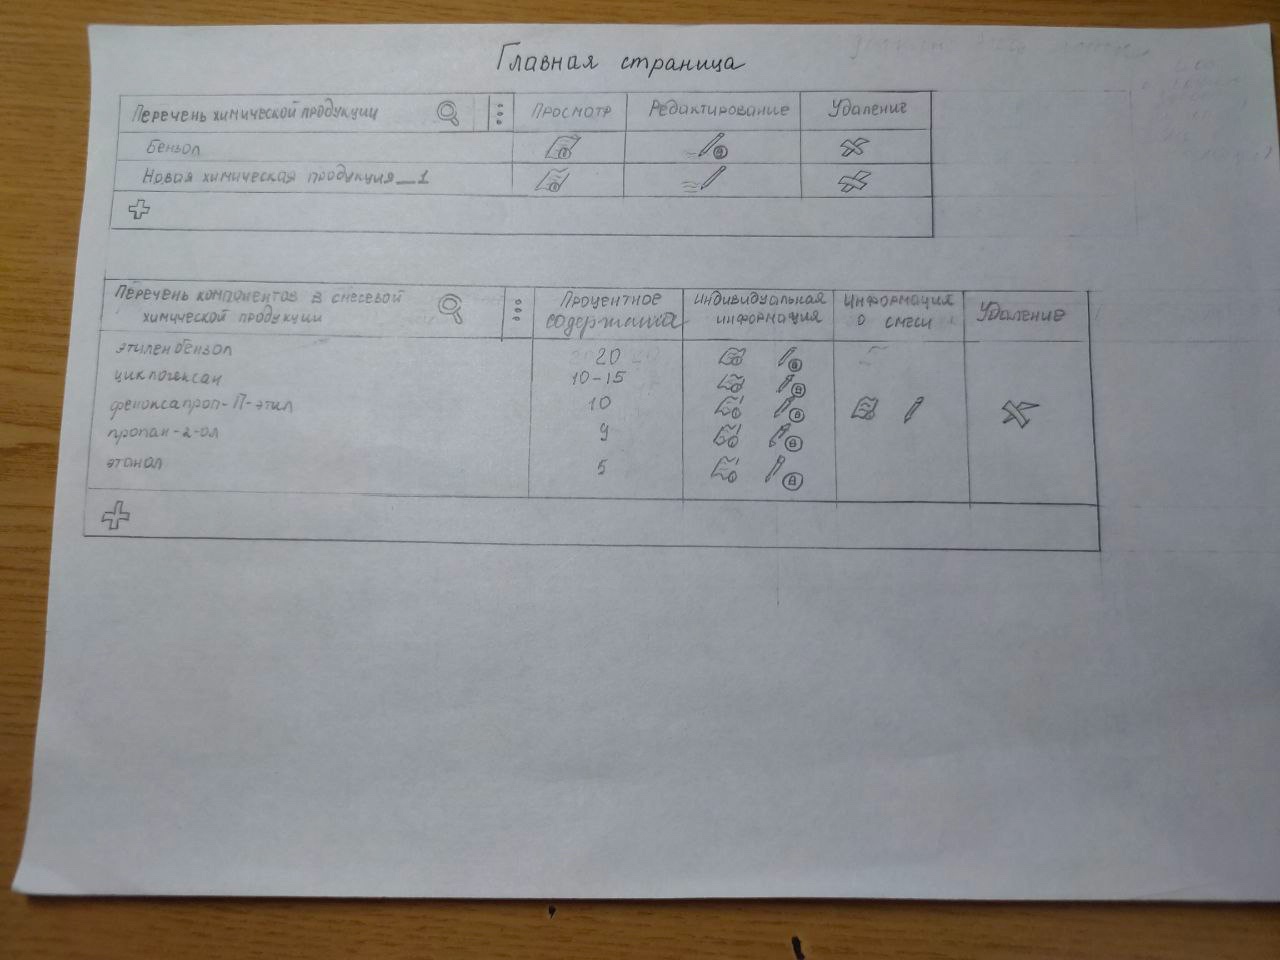 Главная страница
Перечень химической продукции Просмотр Редактирование Удаление
Бензол
Новая химическая продукция_1
Перечень компонентов в смесевой химической продукции Процентное содержание Индивидуальная информация Информация о смеси Удаление
этиленбензол 20
циклогексан 10-15
феноксапроп-П-этил 10
пропан-2-ол 9
этанол 5